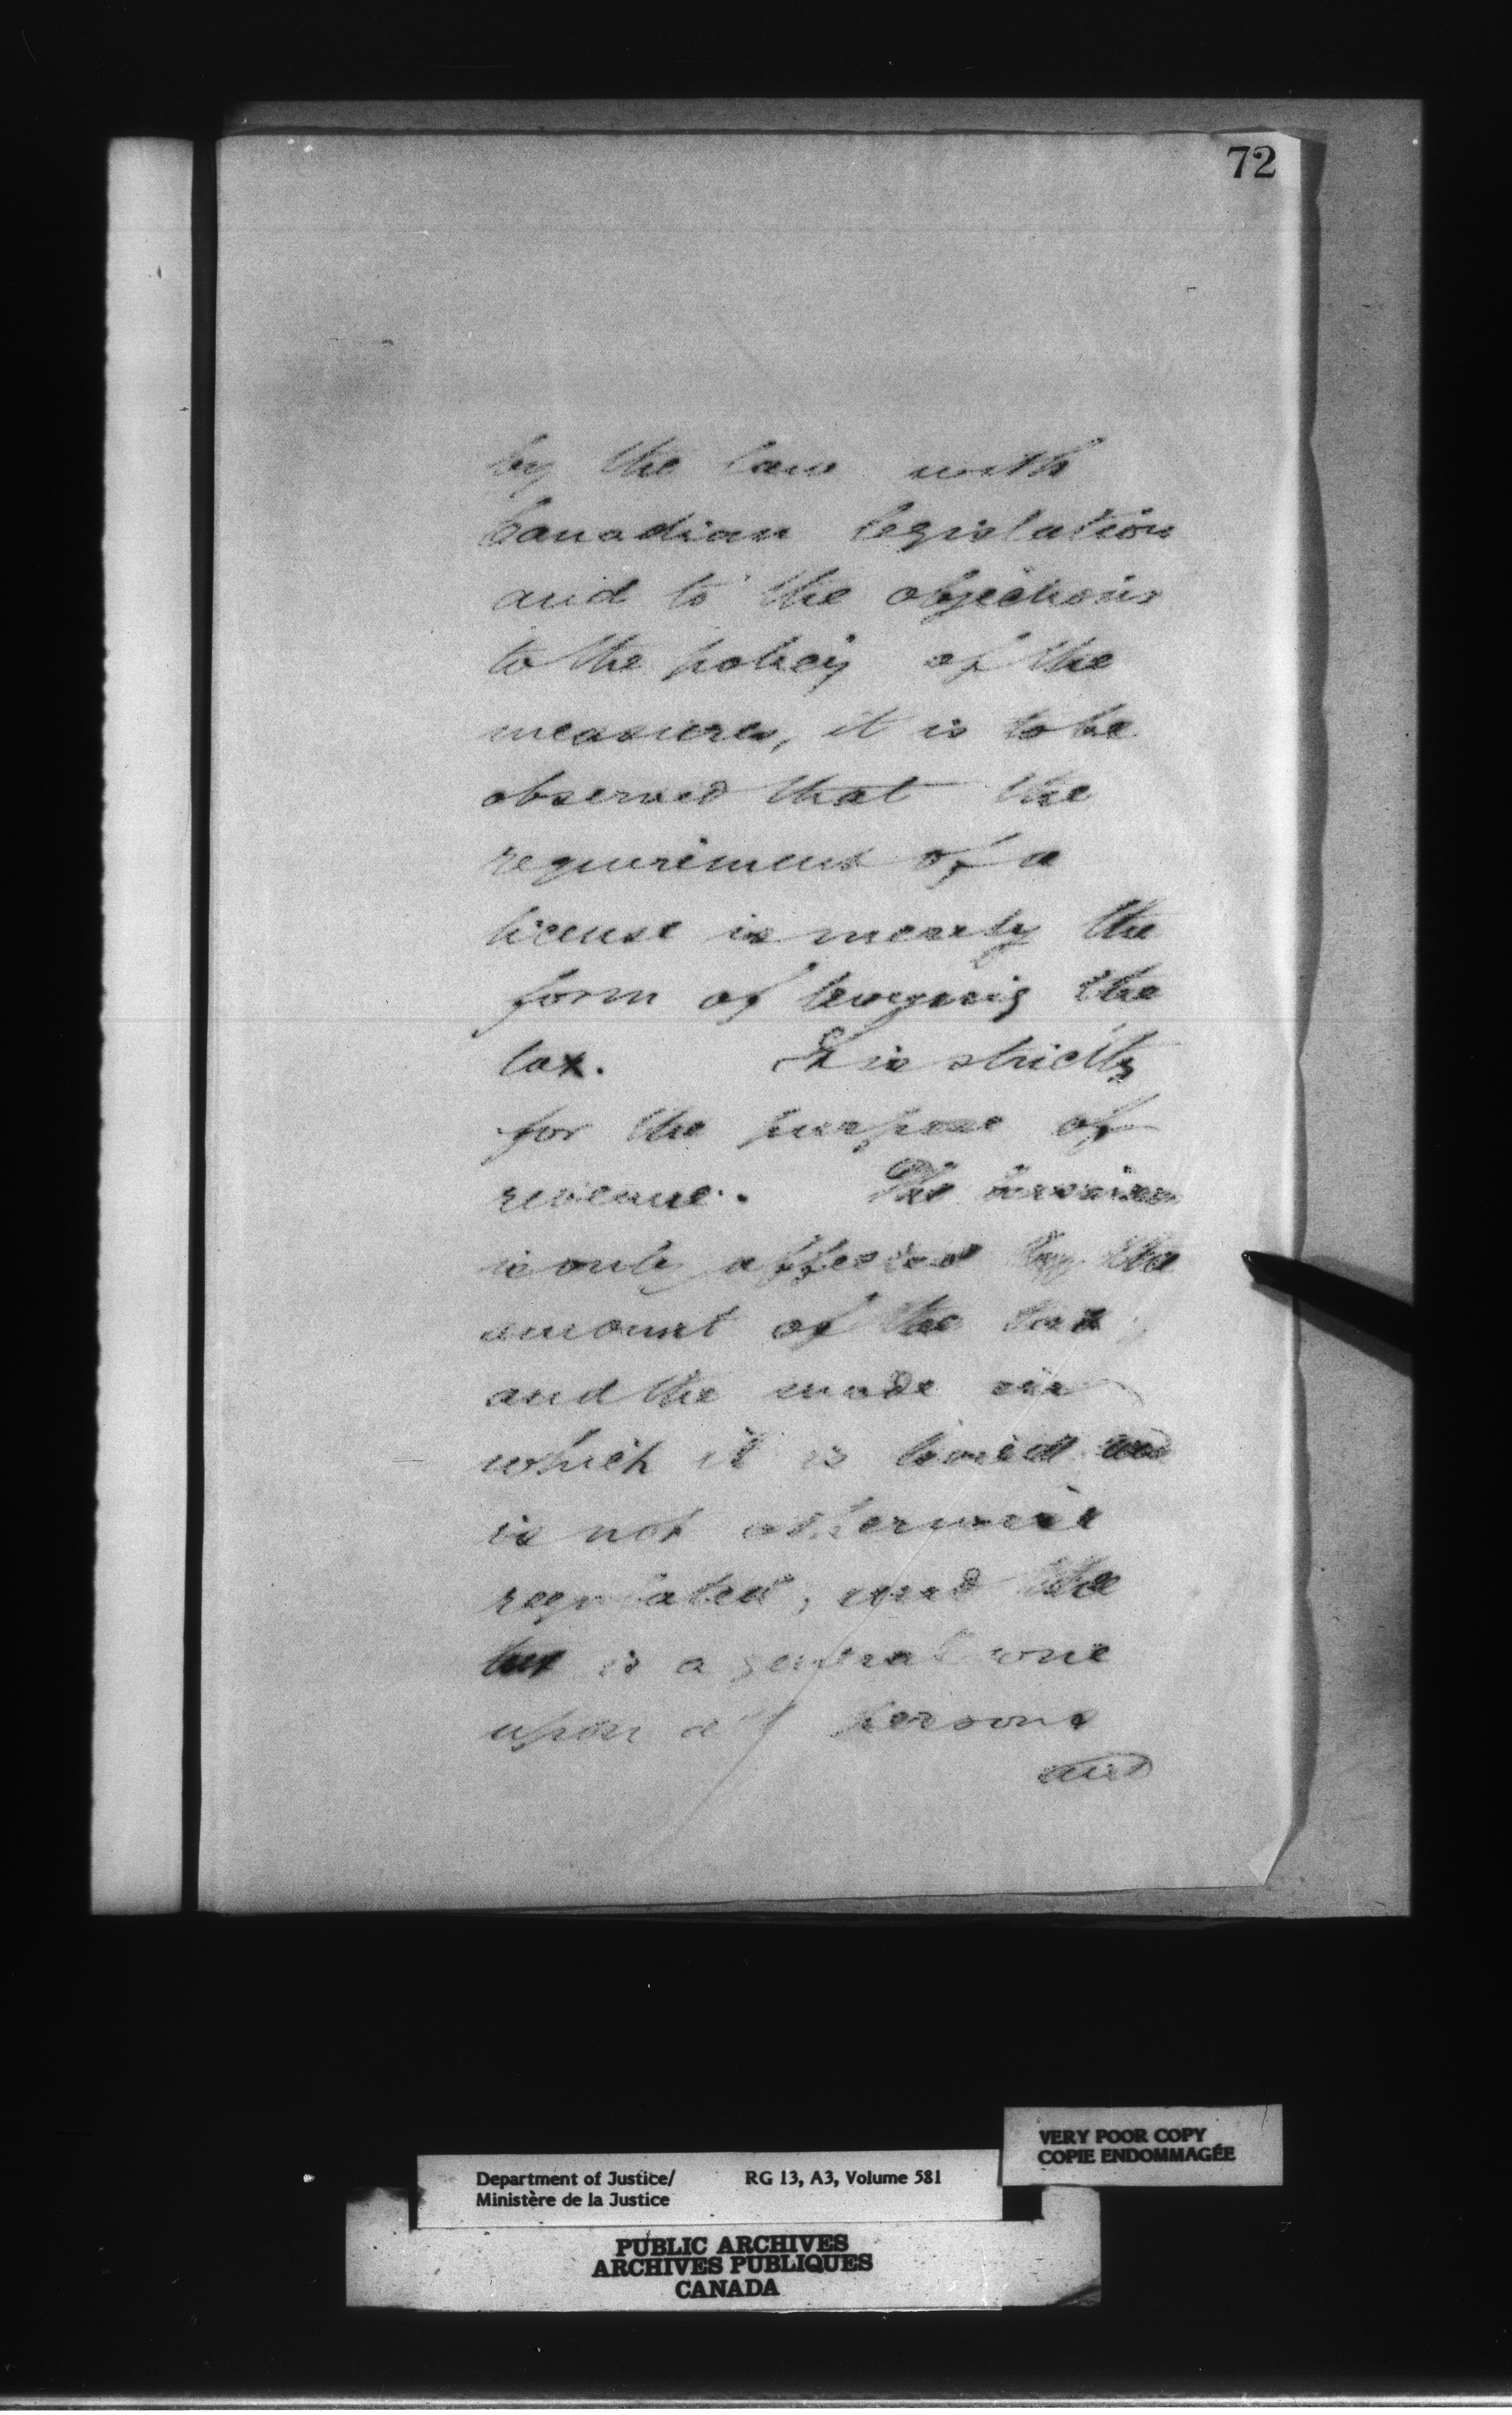 72
by the law with
Canadian legislation
and to the objections
to the policy of the
measures, it is to be
observed that the
requirement of a
license is merely the
form of levying the
tax. It is strictly
for the purpose of
revenue. The business
is only affected by the
amount of the tax
and the mode in
which it is levied and
is not otherwise
regulated; and the
tax is a general one
upon all persons
and
VERY POOR COPY
COPIE ENDOMMAGÉE
Department of Justice/ RG 13, A3, Volume 581
Ministère de la Justice
PUBLIC ARCHIVES
ARCHIVES PUBLIQUES
CANADA